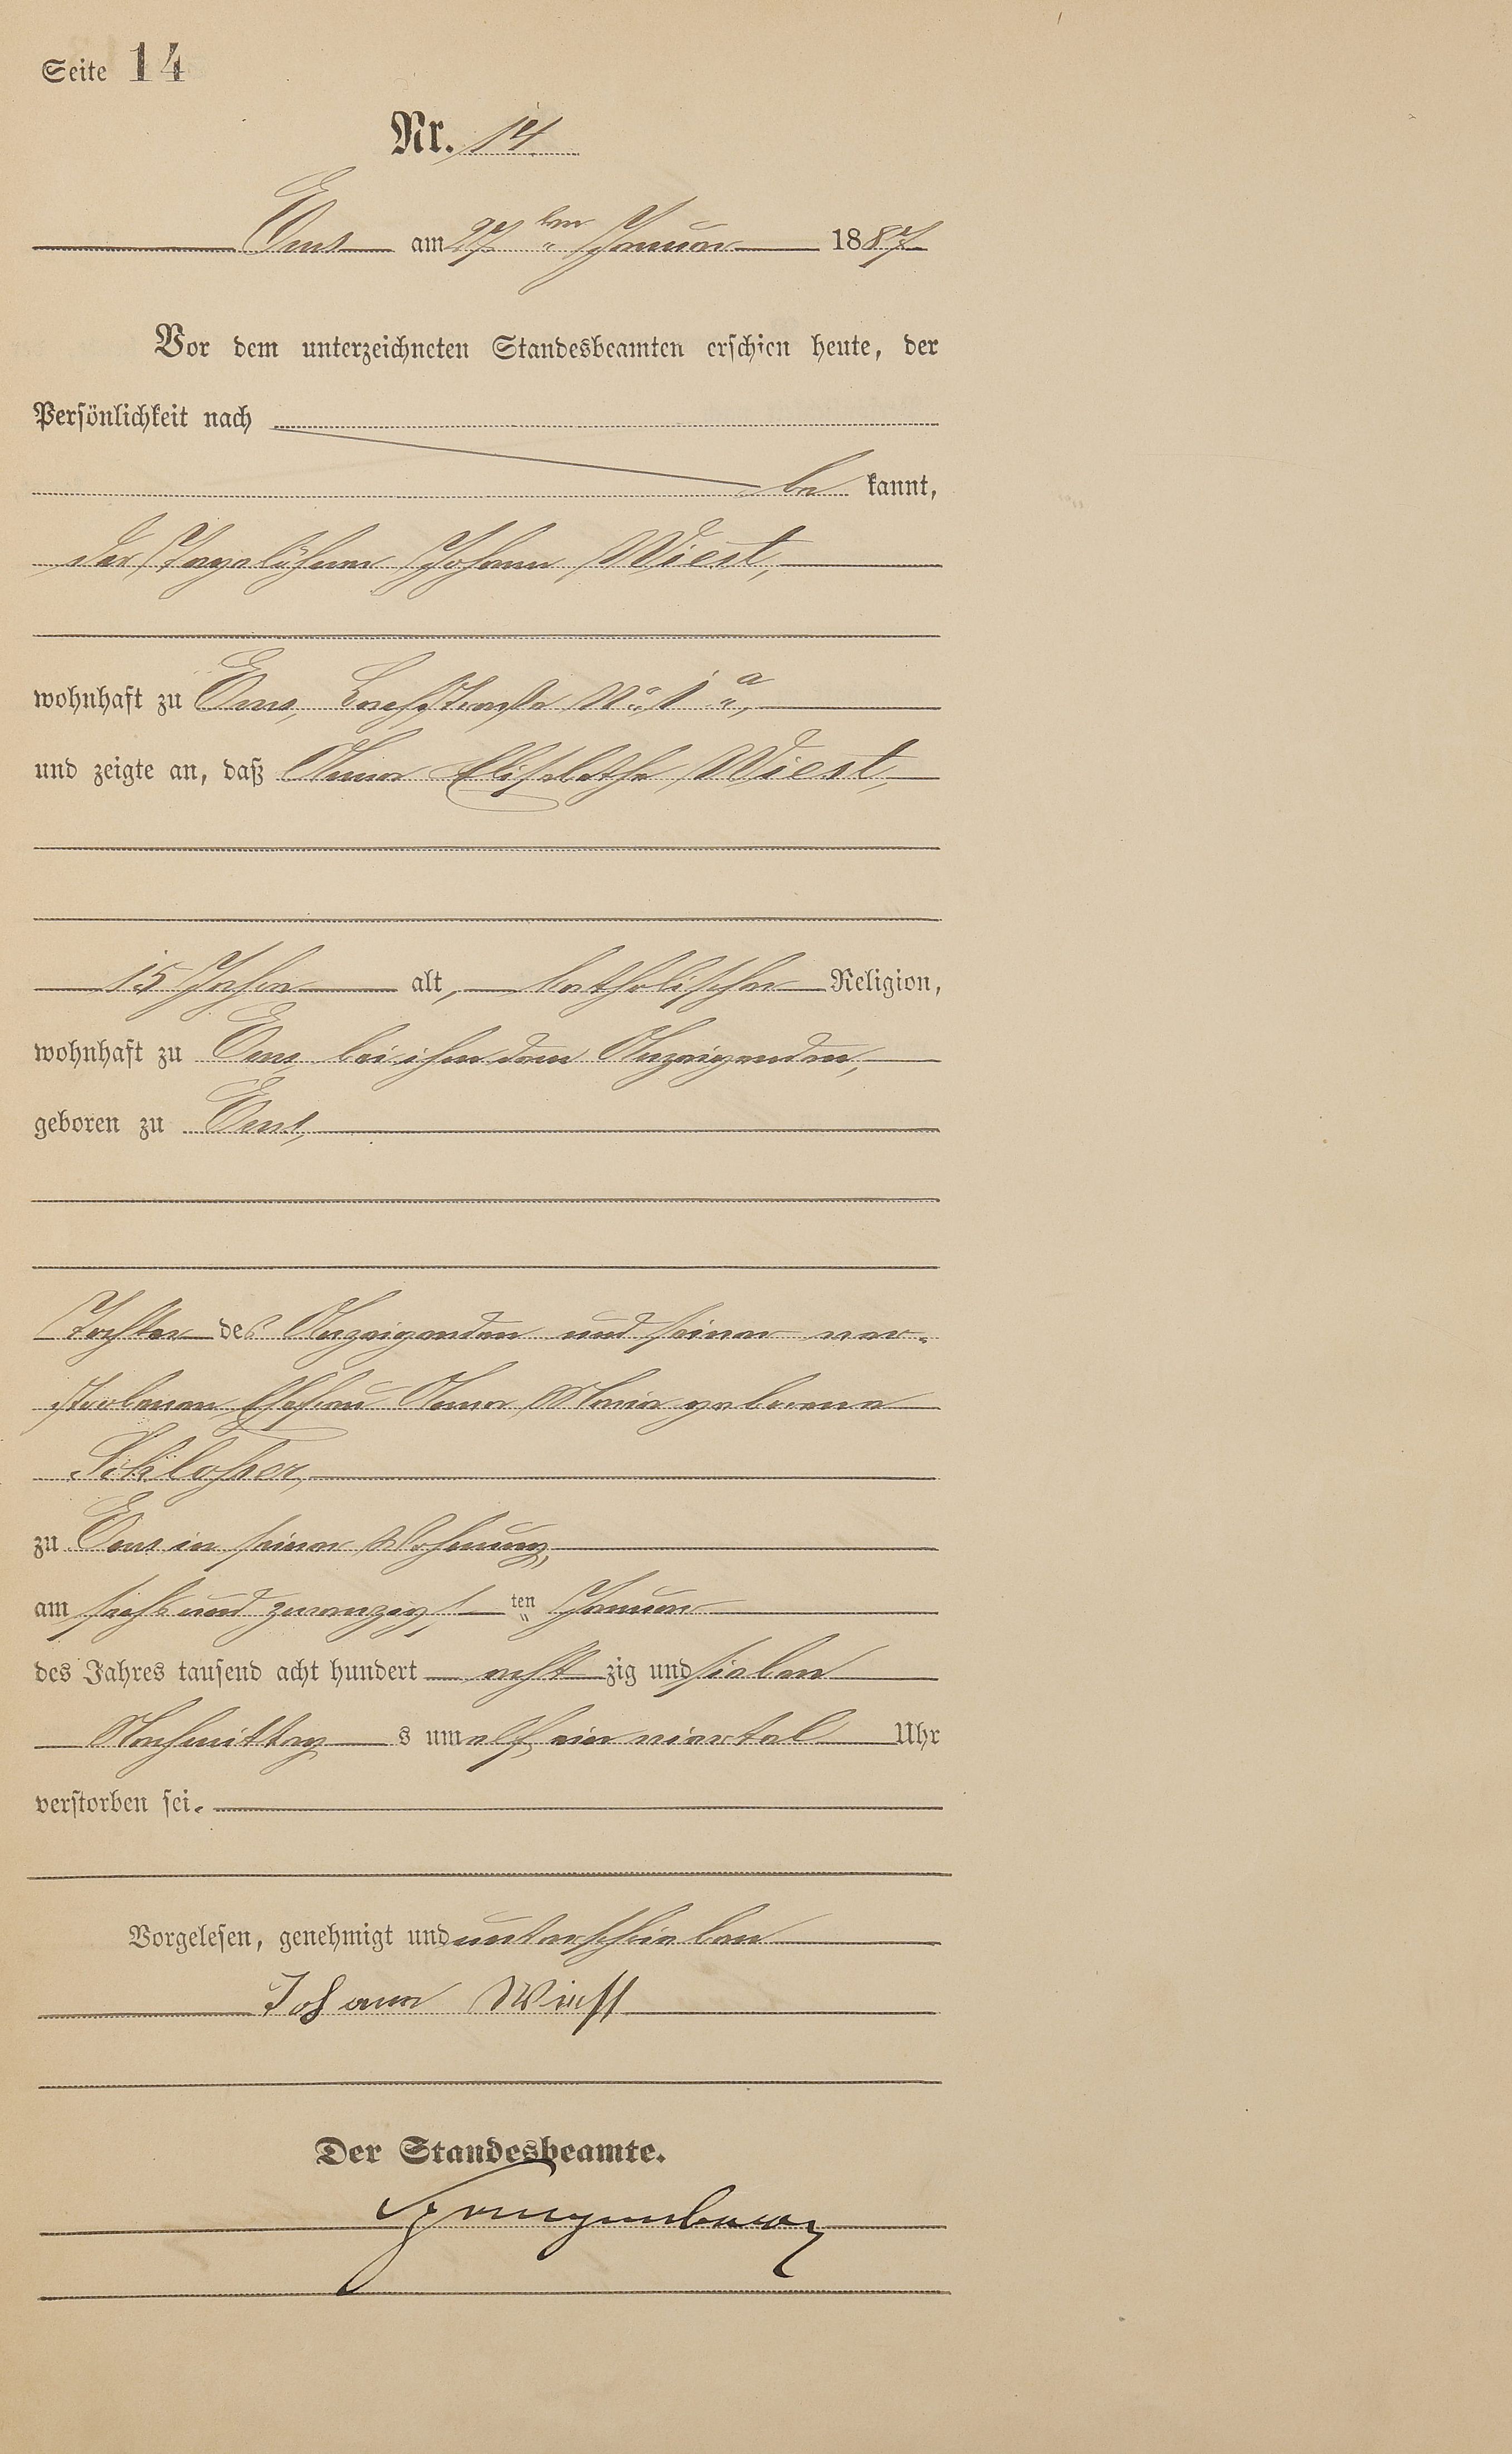 Seite 14
Nr. 14
Ems am 27ten Januar 1887
Vor dem unterzeichneten Standesbeamten erschien heute, der
Persönlichkeit nach
be kannt,
der Tagelöhner Johann Wiest,
wohnhaft zu Ems, No 1 a,
und zeigte an, daß Anna Elisabethe Wiest,
15 Jahre alt, katholischer Religion,
wohnhaft zu Ems, bei ihm dem Anzeigenden,
geboren zu Ems,
Tochter des Anzeigenden und seiner ver-
storbenen Ehefrau Anna Maria geborene
Schlosser,
zu Ems in seiner Wohnung,
am sechs und zwanzigs ten Januar
des Jahres tausend acht hundert acht zig und sieben
Nachmittag s um elf ein viertel Uhr
verstorben sei.
Vorgelesen, genehmigt und unterschrieben
Johann Wiest
Der Standesbeamte.